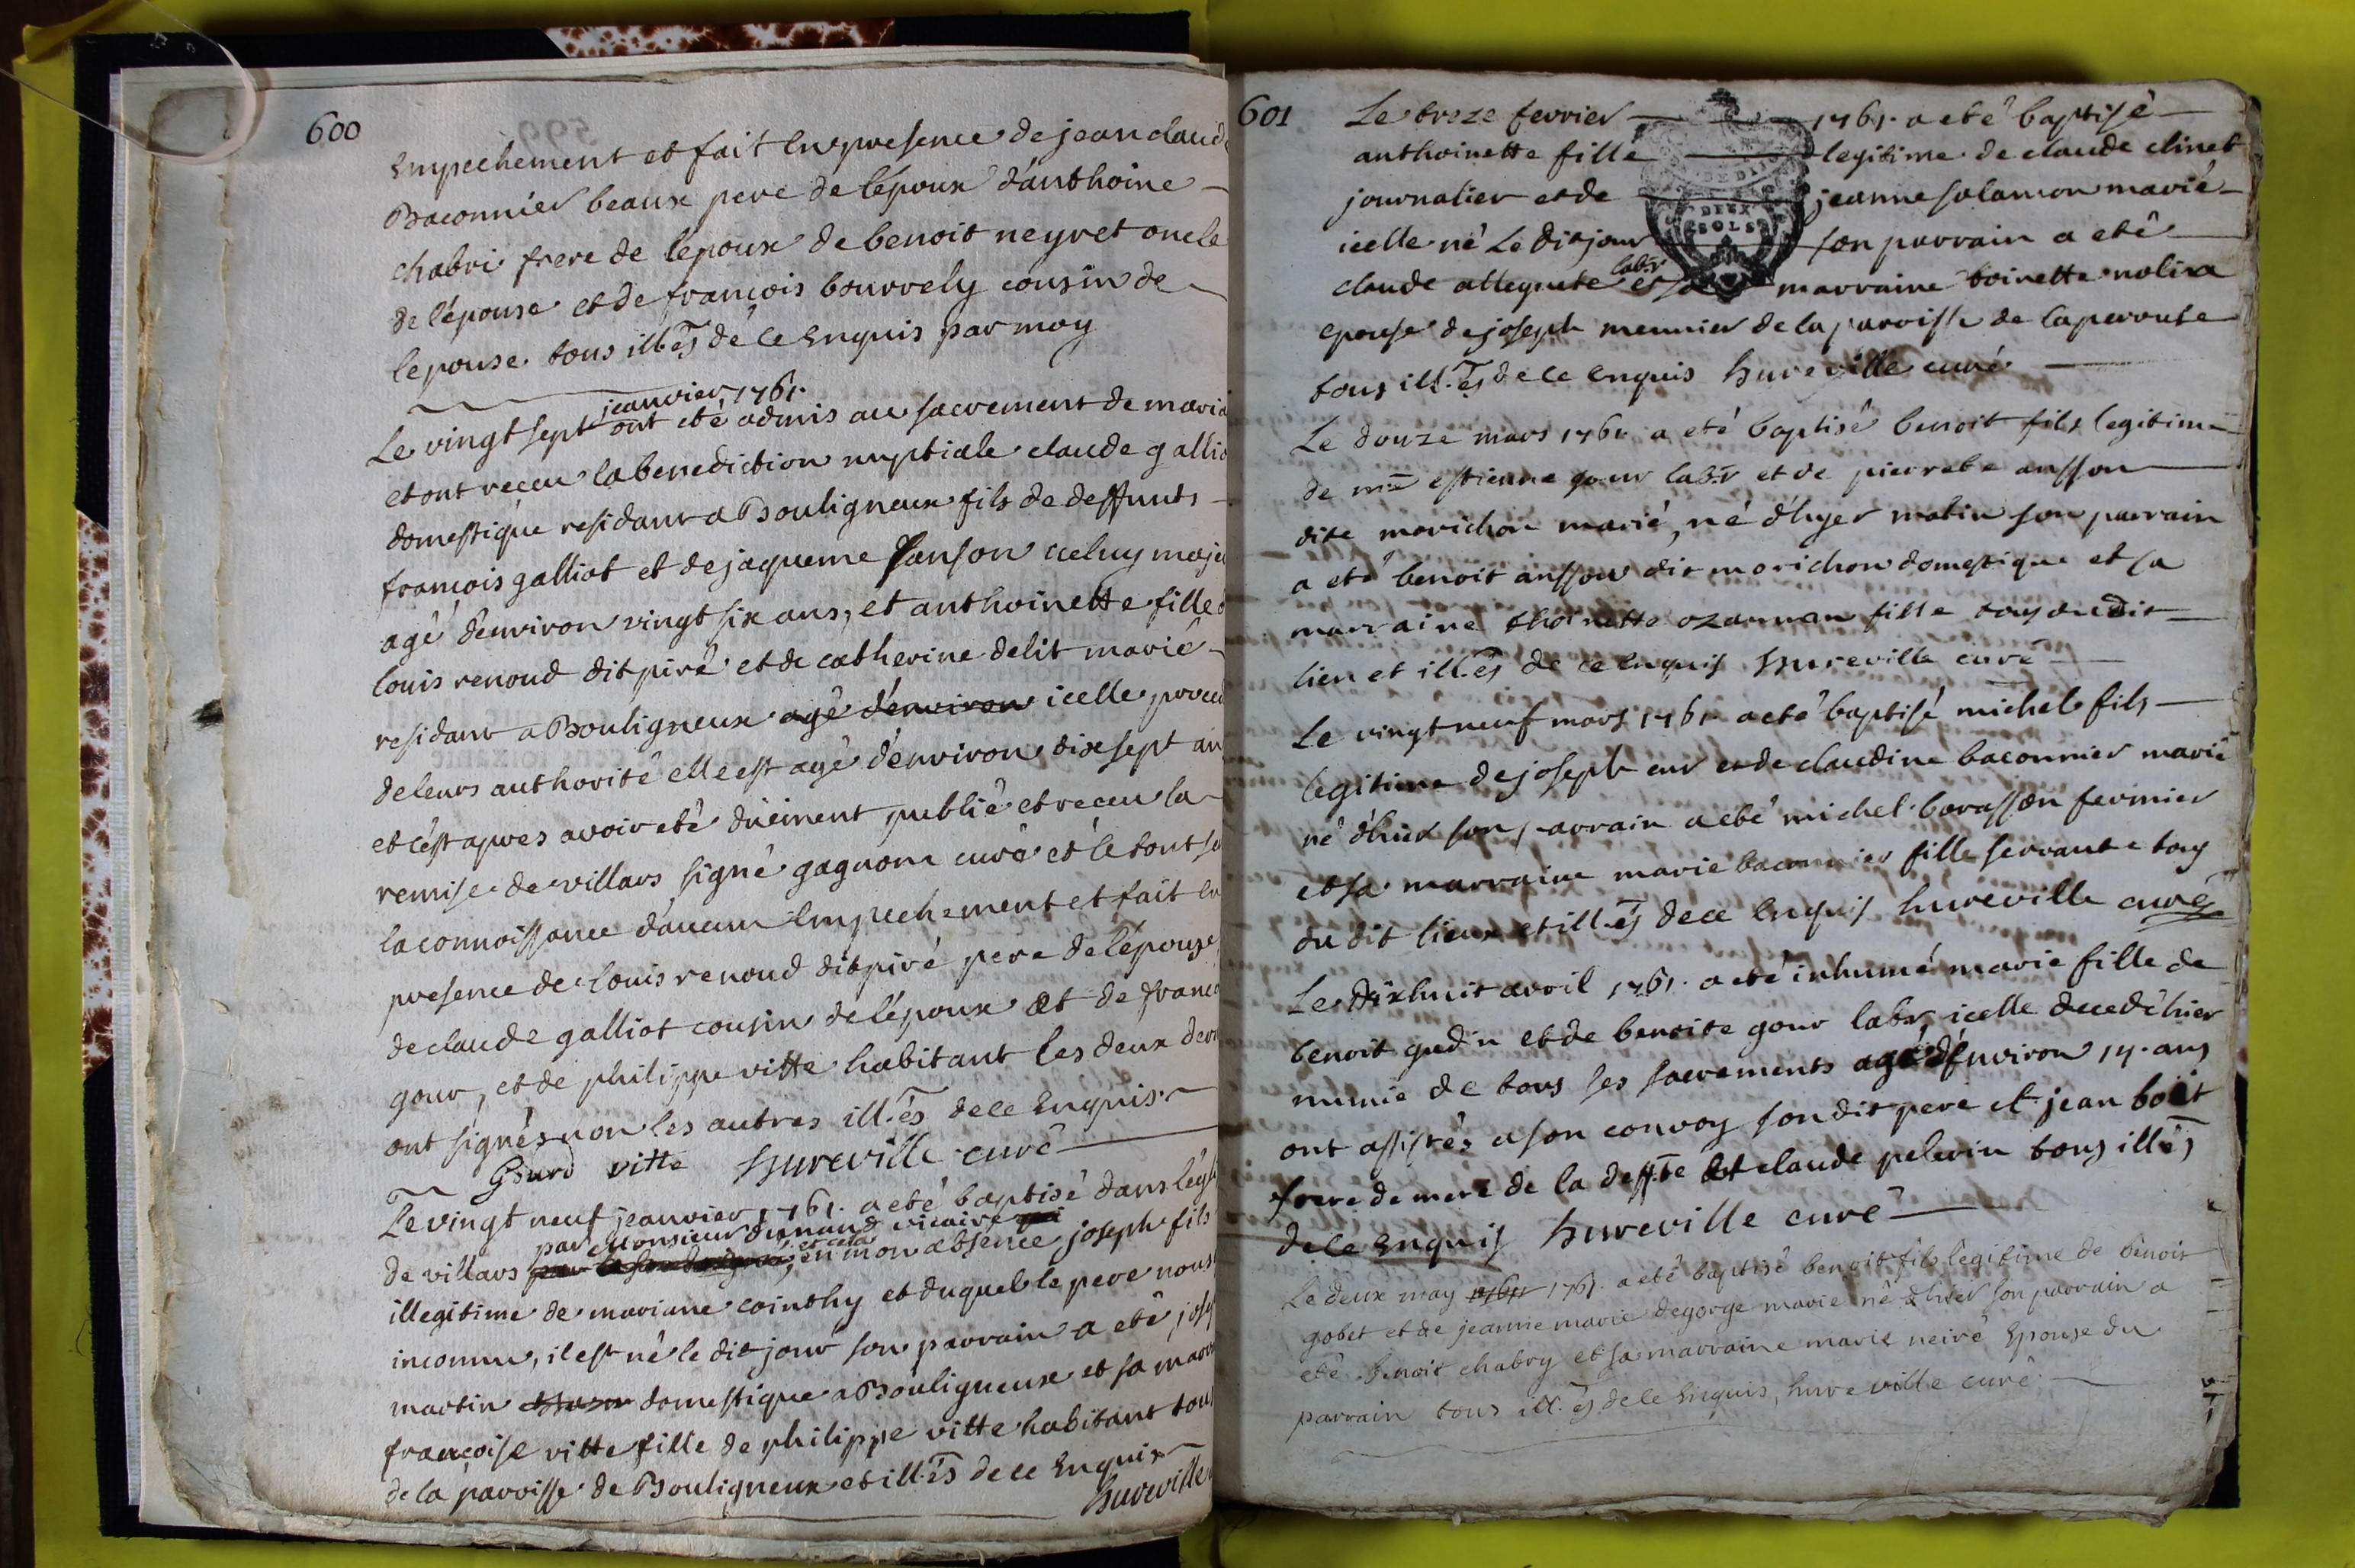 600
Empechement et fait en presence de jean claude
Baconnier beaux pere de lépoux d'anthoine
chabri frere de lépoux de benoit neyret oncle
de l'épouse et de françois bourrely cousin de
lepouse tous ill.és de ce Enquis par moy
jeanvier 1761.
Le vingt sept ont été admis au sacrement de maria
et ont receu la benediction nuptiale claude gallio
domestique residant a Bouligneux fils de deffunts
françois galliot et de jaqueme sanson iceluy maje
agé d'environ vingt six ans, et anthoinette fille d
louis renoud dit piré et de catherine delit marié
residant a Bouligneux agé d'environ icelle proced
de leurs authorité elle est agé d'environ dix sept an
et c'est apres avoir eté düement publié et receu la
remise de villars signé gagnom curé et le tout s
la connoissance d'aucun Empechement et fait en
presence de louis renoud dit piré pere de lépouse,
de claude galliot cousin de lépoux et de franc
gour, et de philippe vitte habitant les deux der
ont signés non les autres ill.és de ce Enquis.
Gburd vitte hureville curé
Le vingt neuf jeanvier 1761. a eté baptisé dans légl
par Monsieur dunand vicaire
de villars et cela en mon absence joseph fils
illegitime de mariane cointhy et duquel le pere nous
inconnu, il est né le dit jour son parrain a eté jos
martin domestique a Bouligneux et sa marr
françoise vitte fille de philippe vitte habitant tous
de la paroisse de Bouligneux et ill.és de ce Enquis
hureville
601
Le treze fevrier 1761. a eté baptisé
anthoinette fille legitime de claude clinet
journalier et de jeanne salamon marié
icelle né Le dit jour son parrain a eté
DEUX SOLS
labr
claude allegrete et sa marraine toinette
epouse de joseph meunier de la paroisse de laperouse
tous ill.és de ce enquis hureville curé
Le douze mars 1761 a eté baptisé benoit fils legitime
de estienne gour labr et de pierrete ansson
dite morichon marié, né d'hyer matin son parrain
a eté benoit ansson dit morichon domestique et sa
marraine thoinette ozannan fille tous du dit
lieu et ill.és de ce enquis hureville curé
Le vingt neuf mars 1761. a eté baptisé michel fils
legitime de joseph cur et de claudine baconnier marié
né d'hier son parrain a eté michel barasson fermier
et sa marraine marie baconnier fille servante tous
du dit lieux et ill.és de ce enquis hureville curé
Le dix huit avril 1761. a eté inhumé marie fille de
benoit gudin et de benoite gour labr icelle decedé hier
munie de tous ses sacrements agé d'environ 14. ans
ont assistés a son convoy son dit pere et jean boit
frere de mere de la deff.te et claude pelerin tous illés
de ce Enquis hureville curé
Le deux may 1761. a eté baptisé benoit fils legitime de benoit
gobet et de jeanne marie degorge marié né d'hier son parrain a
eté benoit chabry et sa marraine marie neiré Epouse du
parrain tous ill.és de ce Enquis, hureville curé